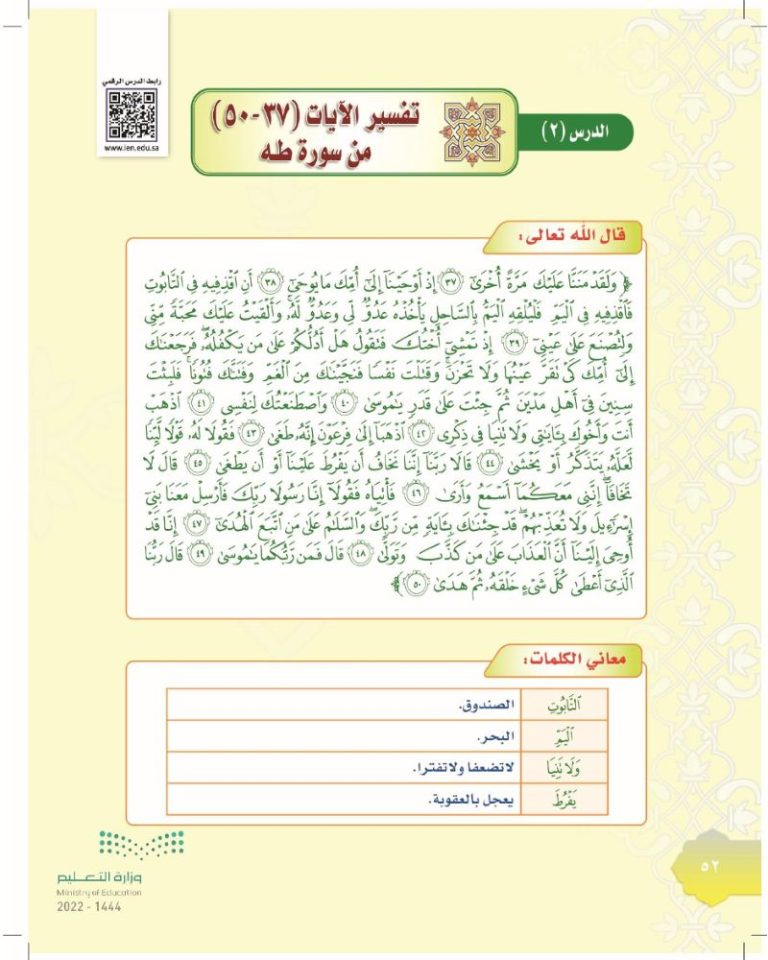 رابط الدرس الرقمي
www.ien.edu.sa
الدرس (٢)
تفسير الآيات (٣٧-٥٠)
من سورة طه
قال الله تعالى:
﴿ وَلَقَدْ مَنَنَّا عَلَيْكَ مَرَّةً أُخْرَىٰ ٣٧ إِذْ أَوْحَيْنَا إِلَىٰ أُمِّكَ مَا يُوحَىٰ ٣٨ أَنِ اقْذِفِيهِ فِي التَّابُوتِ
فَاقْذِفِيهِ فِي الْيَمِّ فَلْيُلْقِهِ الْيَمُّ بِالسَّاحِلِ يَأْخُذْهُ عَدُوٌّ لِّي وَعَدُوٌّ لَّهُ ۚ وَأَلْقَيْتُ عَلَيْكَ مَحَبَّةً مِّنِّي
وَلِتُصْنَعَ عَلَىٰ عَيْنِي ٣٩ إِذْ تَمْشِي أُخْتُكَ فَتَقُولُ هَلْ أَدُلُّكُمْ عَلَىٰ مَن يَكْفُلُهُ ۖ فَرَجَعْنَاكَ
إِلَىٰ أُمِّكَ كَيْ تَقَرَّ عَيْنُهَا وَلَا تَحْزَنَ ۚ وَقَتَلْتَ نَفْسًا فَنَجَّيْنَاكَ مِنَ الْغَمِّ وَفَتَنَّاكَ فُتُونًا ۚ فَلَبِثْتَ
سِنِينَ فِي أَهْلِ مَدْيَنَ ثُمَّ جِئْتَ عَلَىٰ قَدَرٍ يَا مُوسَىٰ ٤٠ وَاصْطَنَعْتُكَ لِنَفْسِي ٤١ اذْهَبْ
أَنتَ وَأَخُوكَ بِآيَاتِي وَلَا تَنِيَا فِي ذِكْرِي ٤٢ اذْهَبَا إِلَىٰ فِرْعَوْنَ إِنَّهُ طَغَىٰ ٤٣ فَقُولَا لَهُ قَوْلًا لَّيِّنًا
لَّعَلَّهُ يَتَذَكَّرُ أَوْ يَخْشَىٰ ٤٤ قَالَا رَبَّنَا إِنَّنَا نَخَافُ أَن يَفْرُطَ عَلَيْنَا أَوْ أَن يَطْغَىٰ ٤٥ قَالَ لَا
تَخَافَا ۖ إِنَّنِي مَعَكُمَا أَسْمَعُ وَأَرَىٰ ٤٦ فَأْتِيَاهُ فَقُولَا إِنَّا رَسُولَا رَبِّكَ فَأَرْسِلْ مَعَنَا بَنِي
إِسْرَائِيلَ وَلَا تُعَذِّبْهُمْ ۖ قَدْ جِئْنَاكَ بِآيَةٍ مِّن رَّبِّكَ ۖ وَالسَّلَامُ عَلَىٰ مَنِ اتَّبَعَ الْهُدَىٰ ٤٧ إِنَّا قَدْ
أُوحِيَ إِلَيْنَا أَنَّ الْعَذَابَ عَلَىٰ مَن كَذَّبَ وَتَوَلَّىٰ ٤٨ قَالَ فَمَن رَّبُّكُمَا يَا مُوسَىٰ ٤٩ قَالَ رَبُّنَا
الَّذِي أَعْطَىٰ كُلَّ شَيْءٍ خَلْقَهُ ثُمَّ هَدَىٰ ٥٠ ﴾
معاني الكلمات:
التَّابُوتِ الصندوق.
الْيَمِّ البحر.
وَلَا تَنِيَا لاتضعفا ولاتفترا.
يَفْرُطَ يعجل بالعقوبة.
وزارة التعليم
Ministry of Education
2022 - 1444
٥٢